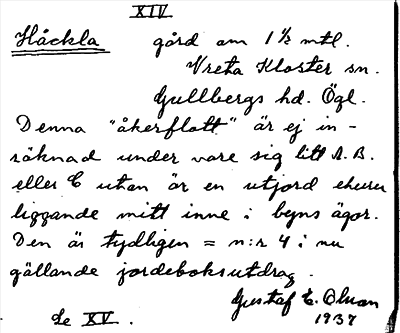 XIV
Håckla gård om 1 1/2 mtl.
Vreta Kloster sn.
Gullbergs hd. Ögl.
Denna "åkerflott" är ej in-
räknad under vare sig litt A. B.
eller C utan är en utjord ehuru
liggande mitt inne i byns ägor.
Den är tydligen = n:r 4 i nu
gällande jordeboksutdrag.
Gustaf E. Olson
Se XV. 1937